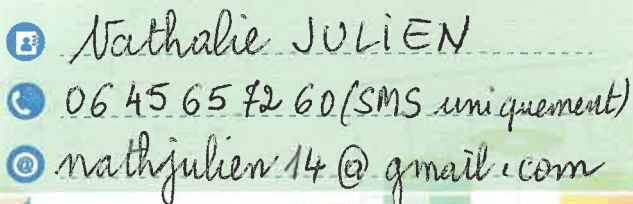 Nathalie JULIEN
06 45 65 72 60 (SMS uniquement)
nathjulien14@gmail.com